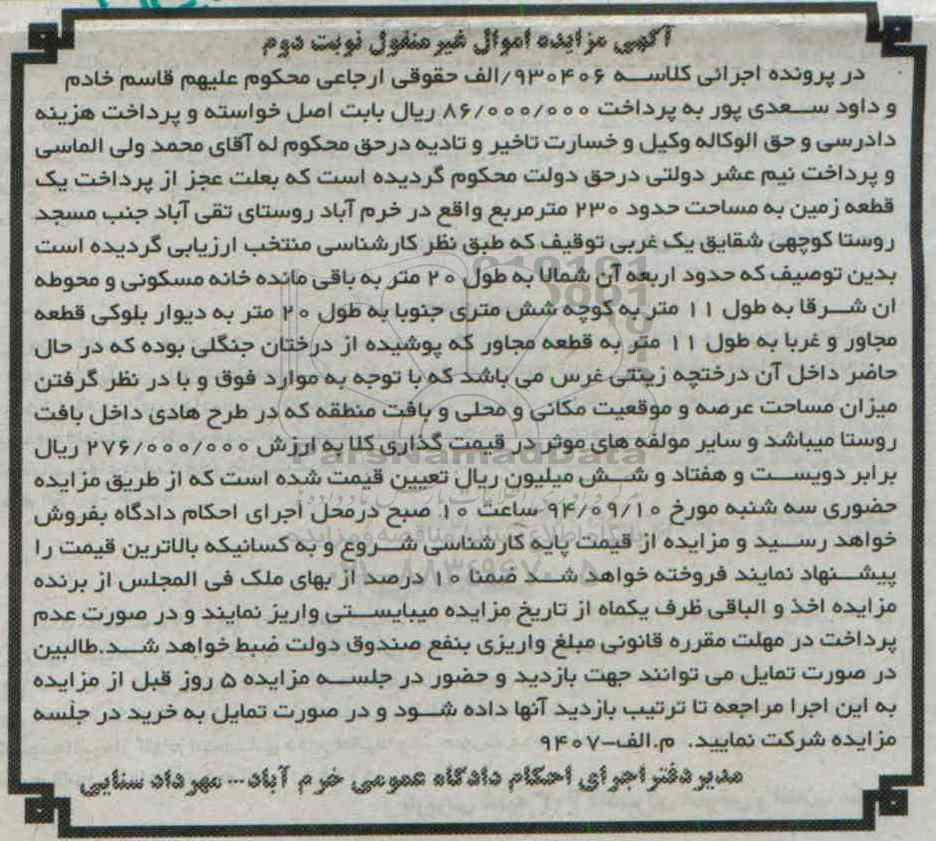 آگهی مزایده اموال غیر منقول نوبت دوم
در پرونده اجرائی کلاسه ۹۳۰۴۰۶/الف حقوقی ارجاعی محکوم علیهم قاسم خادم
و داود سعدی پور به پرداخت ۸۶/۰۰۰/۰۰۰ ریال بابت اصل خواسته و پرداخت هزینه
دادرسی و حق الوکاله وکیل و خسارت تاخیر و تادیه درحق محکوم له آقای محمد ولی الماسی
و پرداخت نیم عشر دولتی درحق دولت محکوم گردیده است که بعلت عجز از پرداخت یک
قطعه زمین به مساحت حدود ۲۳۰ مترمربع واقع در خرم آباد روستای تقی آباد جنب مسجد
روستا کوچهی شقایق یک غربی توقیف که طبق نظر کارشناسی منتخب ارزیابی گردیده است
بدین توصیف که حدود اربعه آن شمالا به طول ۲۰ متر به باقی مانده خانه مسکونی و محوطه
ان شرقا به طول ۱۱ متر به کوچه شش متری جنوبا به طول ۲۰ متر به دیوار بلوکی قطعه
مجاور و غربا به طول ۱۱ متر به قطعه مجاور که پوشیده از درختان جنگلی بوده که در حال
حاضر داخل آن درختچه زینتی غرس می باشد که با توجه به موارد فوق و با در نظر گرفتن
میزان مساحت عرصه و موقعیت مکانی و محلی و بافت منطقه که در طرح هادی داخل بافت
روستا میباشد و سایر مولفه های موثر در قیمت گذاری کلا به ارزش ۲۷۶/۰۰۰/۰۰۰ ریال
برابر دویست و هفتاد و شش میلیون ریال تعیین قیمت شده است که از طریق مزایده
حضوری سه شنبه مورخ ۹۴/۰۹/۱۰ ساعت ۱۰ صبح درمحل اجرای احکام دادگاه بفروش
خواهد رسید و مزایده از قیمت پایه کارشناسی شروع و به کسانیکه بالاترین قیمت را
پیشنهاد نمایند فروخته خواهد شد ضمنا ۱۰ درصد از بهای ملک فی المجلس از برنده
مزایده اخذ و الباقی ظرف یکماه از تاریخ مزایده میبایستی واریز نمایند و در صورت عدم
پرداخت در مهلت مقرره قانونی مبلغ واریزی بنفع صندوق دولت ضبط خواهد شد.طالبین
در صورت تمایل می توانند جهت بازدید و حضور در جلسه مزایده ۵ روز قبل از مزایده
به این اجرا مراجعه تا ترتیب بازدید آنها داده شود و در صورت تمایل به خرید در جلسه
مزایده شرکت نمایید. م.الف-۹۴۰۷
مدیر دفتر اجرای احکام دادگاه عمومی خرم آباد--- مهرداد سنایی
ParsNamadData